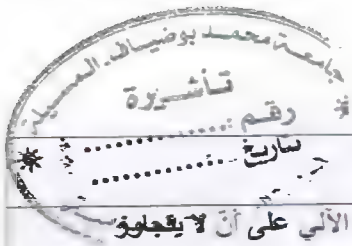 جامعة محمد بوضياف المسيلة
تأشيرة
رقم :..............
بتاريخ ..............
الآلي على أن لا يتجاوز